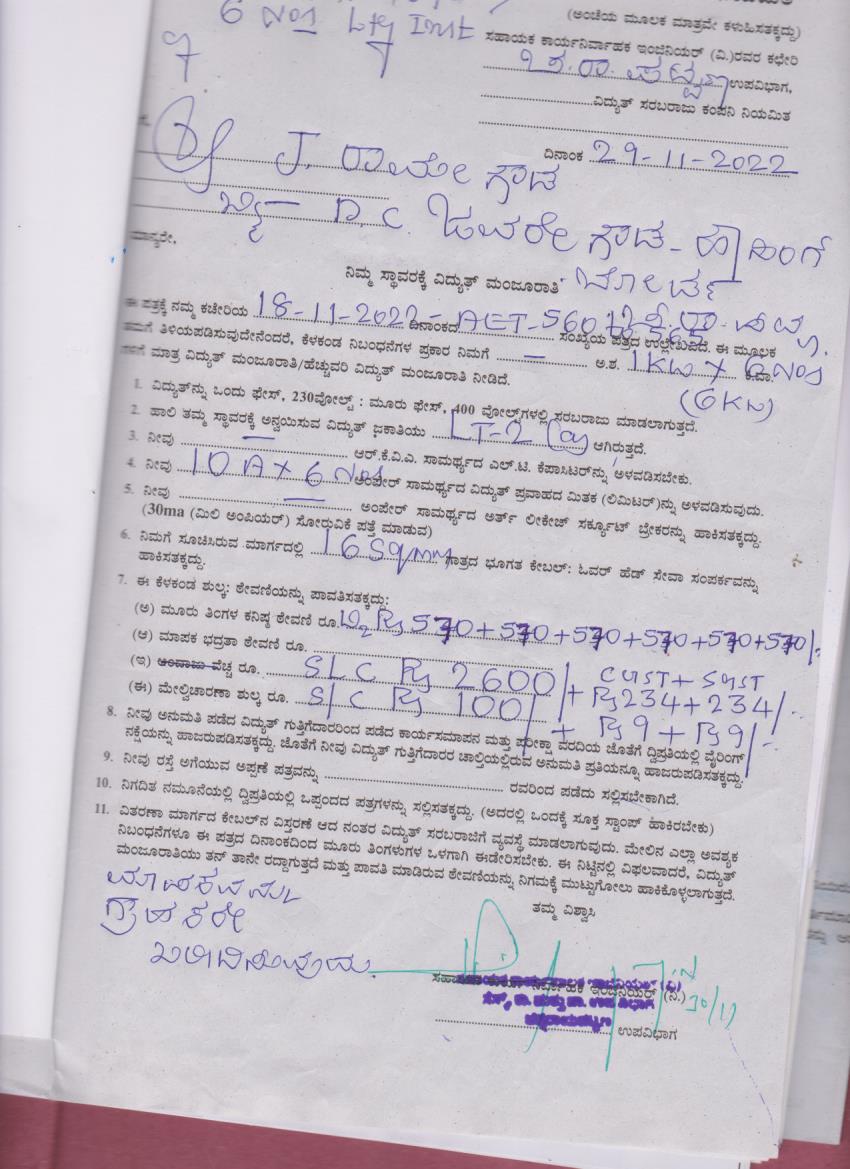 6 Nos Ltg Inst
(ಅಂಚೆಯ ಮೂಲಕ ಮಾತ್ರವೇ ಕಳುಹಿಸತಕ್ಕದ್ದು)
ಸಹಾಯಕ ಕಾರ್ಯನಿರ್ವಾಹಕ ಇಂಜಿನಿಯರ್ (ವಿ.)ರವರ ಕಛೇರಿ
ಉಪವಿಭಾಗ,
ವಿದ್ಯುತ್ ಸರಬರಾಜು ಕಂಪನಿ ನಿಯಮಿತ
ದಿನಾಂಕ 29-11-2022
J. ರಾಮೇಗೌಡ
D.C. ಜವರೇಗೌಡ
ಮಾನ್ಯರೇ,
ನಿಮ್ಮ ಸ್ಥಾವರಕ್ಕೆ ವಿದ್ಯುತ್ ಮಂಜೂರಾತಿ
ಈ ಪತ್ರಕ್ಕೆ ನಮ್ಮ ಕಚೇರಿಯ 18-11-2022 ದಿನಾಂಕದ AET-560 ಸಂಖ್ಯೆಯ ಪತ್ರದ ಉಲ್ಲೇಖವಿದೆ. ಈ ಮೂಲಕ
ತಮಗೆ ತಿಳಿಯಪಡಿಸುವುದೇನೆಂದರೆ, ಕೆಳಕಂಡ ನಿಬಂಧನೆಗಳ ಪ್ರಕಾರ ನಿಮಗೆ — ಅ.ಶ. 1KW x 6 Nos ಕಿ.ವಾ.
ಗಳಿಗೆ ಮಾತ್ರ ವಿದ್ಯುತ್ ಮಂಜೂರಾತಿ/ಹೆಚ್ಚುವರಿ ವಿದ್ಯುತ್ ಮಂಜೂರಾತಿ ನೀಡಿದೆ. (6KW)
1. ವಿದ್ಯುತ್‌ನ್ನು ಒಂದು ಫೇಸ್, 230ವೋಲ್ಟ್ : ಮೂರು ಫೇಸ್, 400 ವೋಲ್ಟ್‌ಗಳಲ್ಲಿ ಸರಬರಾಜು ಮಾಡಲಾಗುತ್ತದೆ.
2. ಹಾಲಿ ತಮ್ಮ ಸ್ಥಾವರಕ್ಕೆ ಅನ್ವಯಿಸುವ ವಿದ್ಯುತ್ ಜಕಾತಿಯು LT-2 (a) ಆಗಿರುತ್ತದೆ.
3. ನೀವು — ಆರ್.ಕೆ.ವಿ.ಎ. ಸಾಮರ್ಥ್ಯದ ಎಲ್.ಟಿ. ಕೆಪಾಸಿಟರ್‌ನ್ನು ಅಳವಡಿಸಬೇಕು.
4. ನೀವು 10 A x 6 Nos ಅಂಪೇರ್ ಸಾಮರ್ಥ್ಯದ ವಿದ್ಯುತ್ ಪ್ರವಾಹದ ಮಿತಕ (ಲಿಮಿಟರ್)ನ್ನು ಅಳವಡಿಸುವುದು.
5. ನೀವು — ಅಂಪೇರ್ ಸಾಮರ್ಥ್ಯದ ಅರ್ತ್ ಲೀಕೇಜ್ ಸರ್ಕ್ಯೂಟ್ ಬ್ರೇಕರನ್ನು ಹಾಕಿಸತಕ್ಕದ್ದು.
(30ma (ಮಿಲಿ ಅಂಪಿಯರ್) ಸೋರುವಿಕೆ ಪತ್ತೆ ಮಾಡುವ)
6. ನಿಮಗೆ ಸೂಚಿಸಿರುವ ಮಾರ್ಗದಲ್ಲಿ 16 Sqmm ಗಾತ್ರದ ಭೂಗತ ಕೇಬಲ್: ಓವರ್ ಹೆಡ್ ಸೇವಾ ಸಂಪರ್ಕವನ್ನು
ಹಾಕಿಸತಕ್ಕದ್ದು.
7. ಈ ಕೆಳಕಂಡ ಶುಲ್ಕ: ಠೇವಣಿಯನ್ನು ಪಾವತಿಸತಕ್ಕದ್ದು:
(ಅ) ಮೂರು ತಿಂಗಳ ಕನಿಷ್ಠ ಠೇವಣಿ ರೂ. Rs 570+570+570+570+570+570/-
(ಆ) ಮಾಪಕ ಭದ್ರತಾ ಠೇವಣಿ ರೂ.
(ಇ) ಅಂದಾಜು ವೆಚ್ಚ ರೂ. SLC Rs 2600/ CGST + SGST
+ Rs 234 + 234/-
(ಈ) ಮೇಲ್ವಿಚಾರಣಾ ಶುಲ್ಕ ರೂ. S/C Rs 100/ + Rs 9 + Rs 9/-
8. ನೀವು ಅನುಮತಿ ಪಡೆದ ವಿದ್ಯುತ್ ಗುತ್ತಿಗೆದಾರರಿಂದ ಪಡೆದ ಕಾರ್ಯಸಮಾಪನ ಮತ್ತು ಪರೀಕ್ಷಾ ವರದಿಯ ಜೊತೆಗೆ ದ್ವಿಪ್ರತಿಯಲ್ಲಿ ವೈರಿಂಗ್
ನಕ್ಷೆಯನ್ನು ಹಾಜರುಪಡಿಸತಕ್ಕದ್ದು. ಜೊತೆಗೆ ನೀವು ವಿದ್ಯುತ್ ಗುತ್ತಿಗೆದಾರರ ಚಾಲ್ತಿಯಲ್ಲಿರುವ ಅನುಮತಿ ಪ್ರತಿಯನ್ನೂ ಹಾಜರುಪಡಿಸತಕ್ಕದ್ದು.
9. ನೀವು ರಸ್ತೆ ಅಗೆಯುವ ಅಪ್ಪಣೆ ಪತ್ರವನ್ನು ರವರಿಂದ ಪಡೆದು ಸಲ್ಲಿಸಬೇಕಾಗಿದೆ.
10. ನಿಗದಿತ ನಮೂನೆಯಲ್ಲಿ ದ್ವಿಪ್ರತಿಯಲ್ಲಿ ಒಪ್ಪಂದದ ಪತ್ರಗಳನ್ನು ಸಲ್ಲಿಸತಕ್ಕದ್ದು. (ಅದರಲ್ಲಿ ಒಂದಕ್ಕೆ ಸೂಕ್ತ ಸ್ಟಾಂಪ್ ಹಾಕಿರಬೇಕು)
11. ವಿತರಣಾ ಮಾರ್ಗದ ಕೇಬಲ್‌ನ ವಿಸ್ತರಣೆ ಆದ ನಂತರ ವಿದ್ಯುತ್ ಸರಬರಾಜಿಗೆ ವ್ಯವಸ್ಥೆ ಮಾಡಲಾಗುವುದು. ಮೇಲಿನ ಎಲ್ಲಾ ಅವಶ್ಯಕ
ನಿಬಂಧನೆಗಳೂ ಈ ಪತ್ರದ ದಿನಾಂಕದಿಂದ ಮೂರು ತಿಂಗಳುಗಳ ಒಳಗಾಗಿ ಈಡೇರಿಸಬೇಕು. ಈ ನಿಟ್ಟಿನಲ್ಲಿ ವಿಫಲವಾದರೆ, ವಿದ್ಯುತ್
ಮಂಜೂರಾತಿಯು ತನ್ ತಾನೇ ರದ್ದಾಗುತ್ತದೆ ಮತ್ತು ಪಾವತಿ ಮಾಡಿರುವ ಠೇವಣಿಯನ್ನು ನಿಗಮಕ್ಕೆ ಮುಟ್ಟುಗೋಲು ಹಾಕಿಕೊಳ್ಳಲಾಗುತ್ತದೆ.
ಮಾಪಕವನ್ನು
ಗ್ರಾಹಕರೇ
ತಮ್ಮ ವಿಶ್ವಾಸಿ
ಸಹಾಯಕ ಕಾರ್ಯ ನಿರ್ವಾಹಕ ಇಂಜಿನಿಯರ್ (ವಿ.)
30/11
ಉಪವಿಭಾಗ